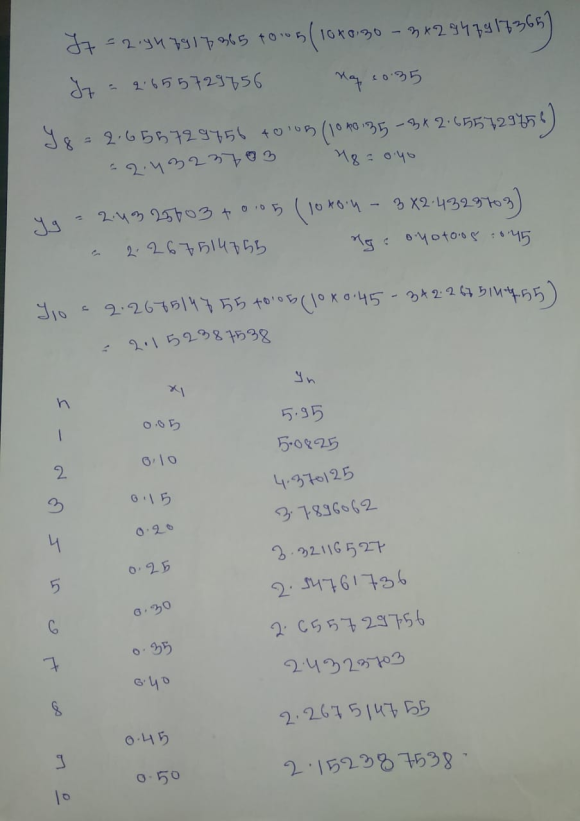 y7 = 2.947917365 + 0.05 (10×0.30 - 3×2947917365)
y7 = 2.655729756 x7 = 0.35
y8 = 2.655729756 + 0.05 (10×0.35 - 3×2.655729756)
= 2.4323703 x8 = 0.40
y9 = 2.4323703 + 0.05 (10×0.4 - 3×2.4323703)
= 2.267514755 x9 = 0.40+0.05 = 0.45
y10 = 2.267514755 + 0.05 (10×0.45 - 3×2.267514755)
= 2.152387538
n x1 yn
1 0.05 5.95
2 0.10 5.0825
3 0.15 4.370125
4 0.20 3.7896062
5 0.25 3.32116527
6 0.30 2.94761736
7 0.35 2.655729756
8 0.40 2.4323703
9 0.45 2.267514755
10 0.50 2.152387538